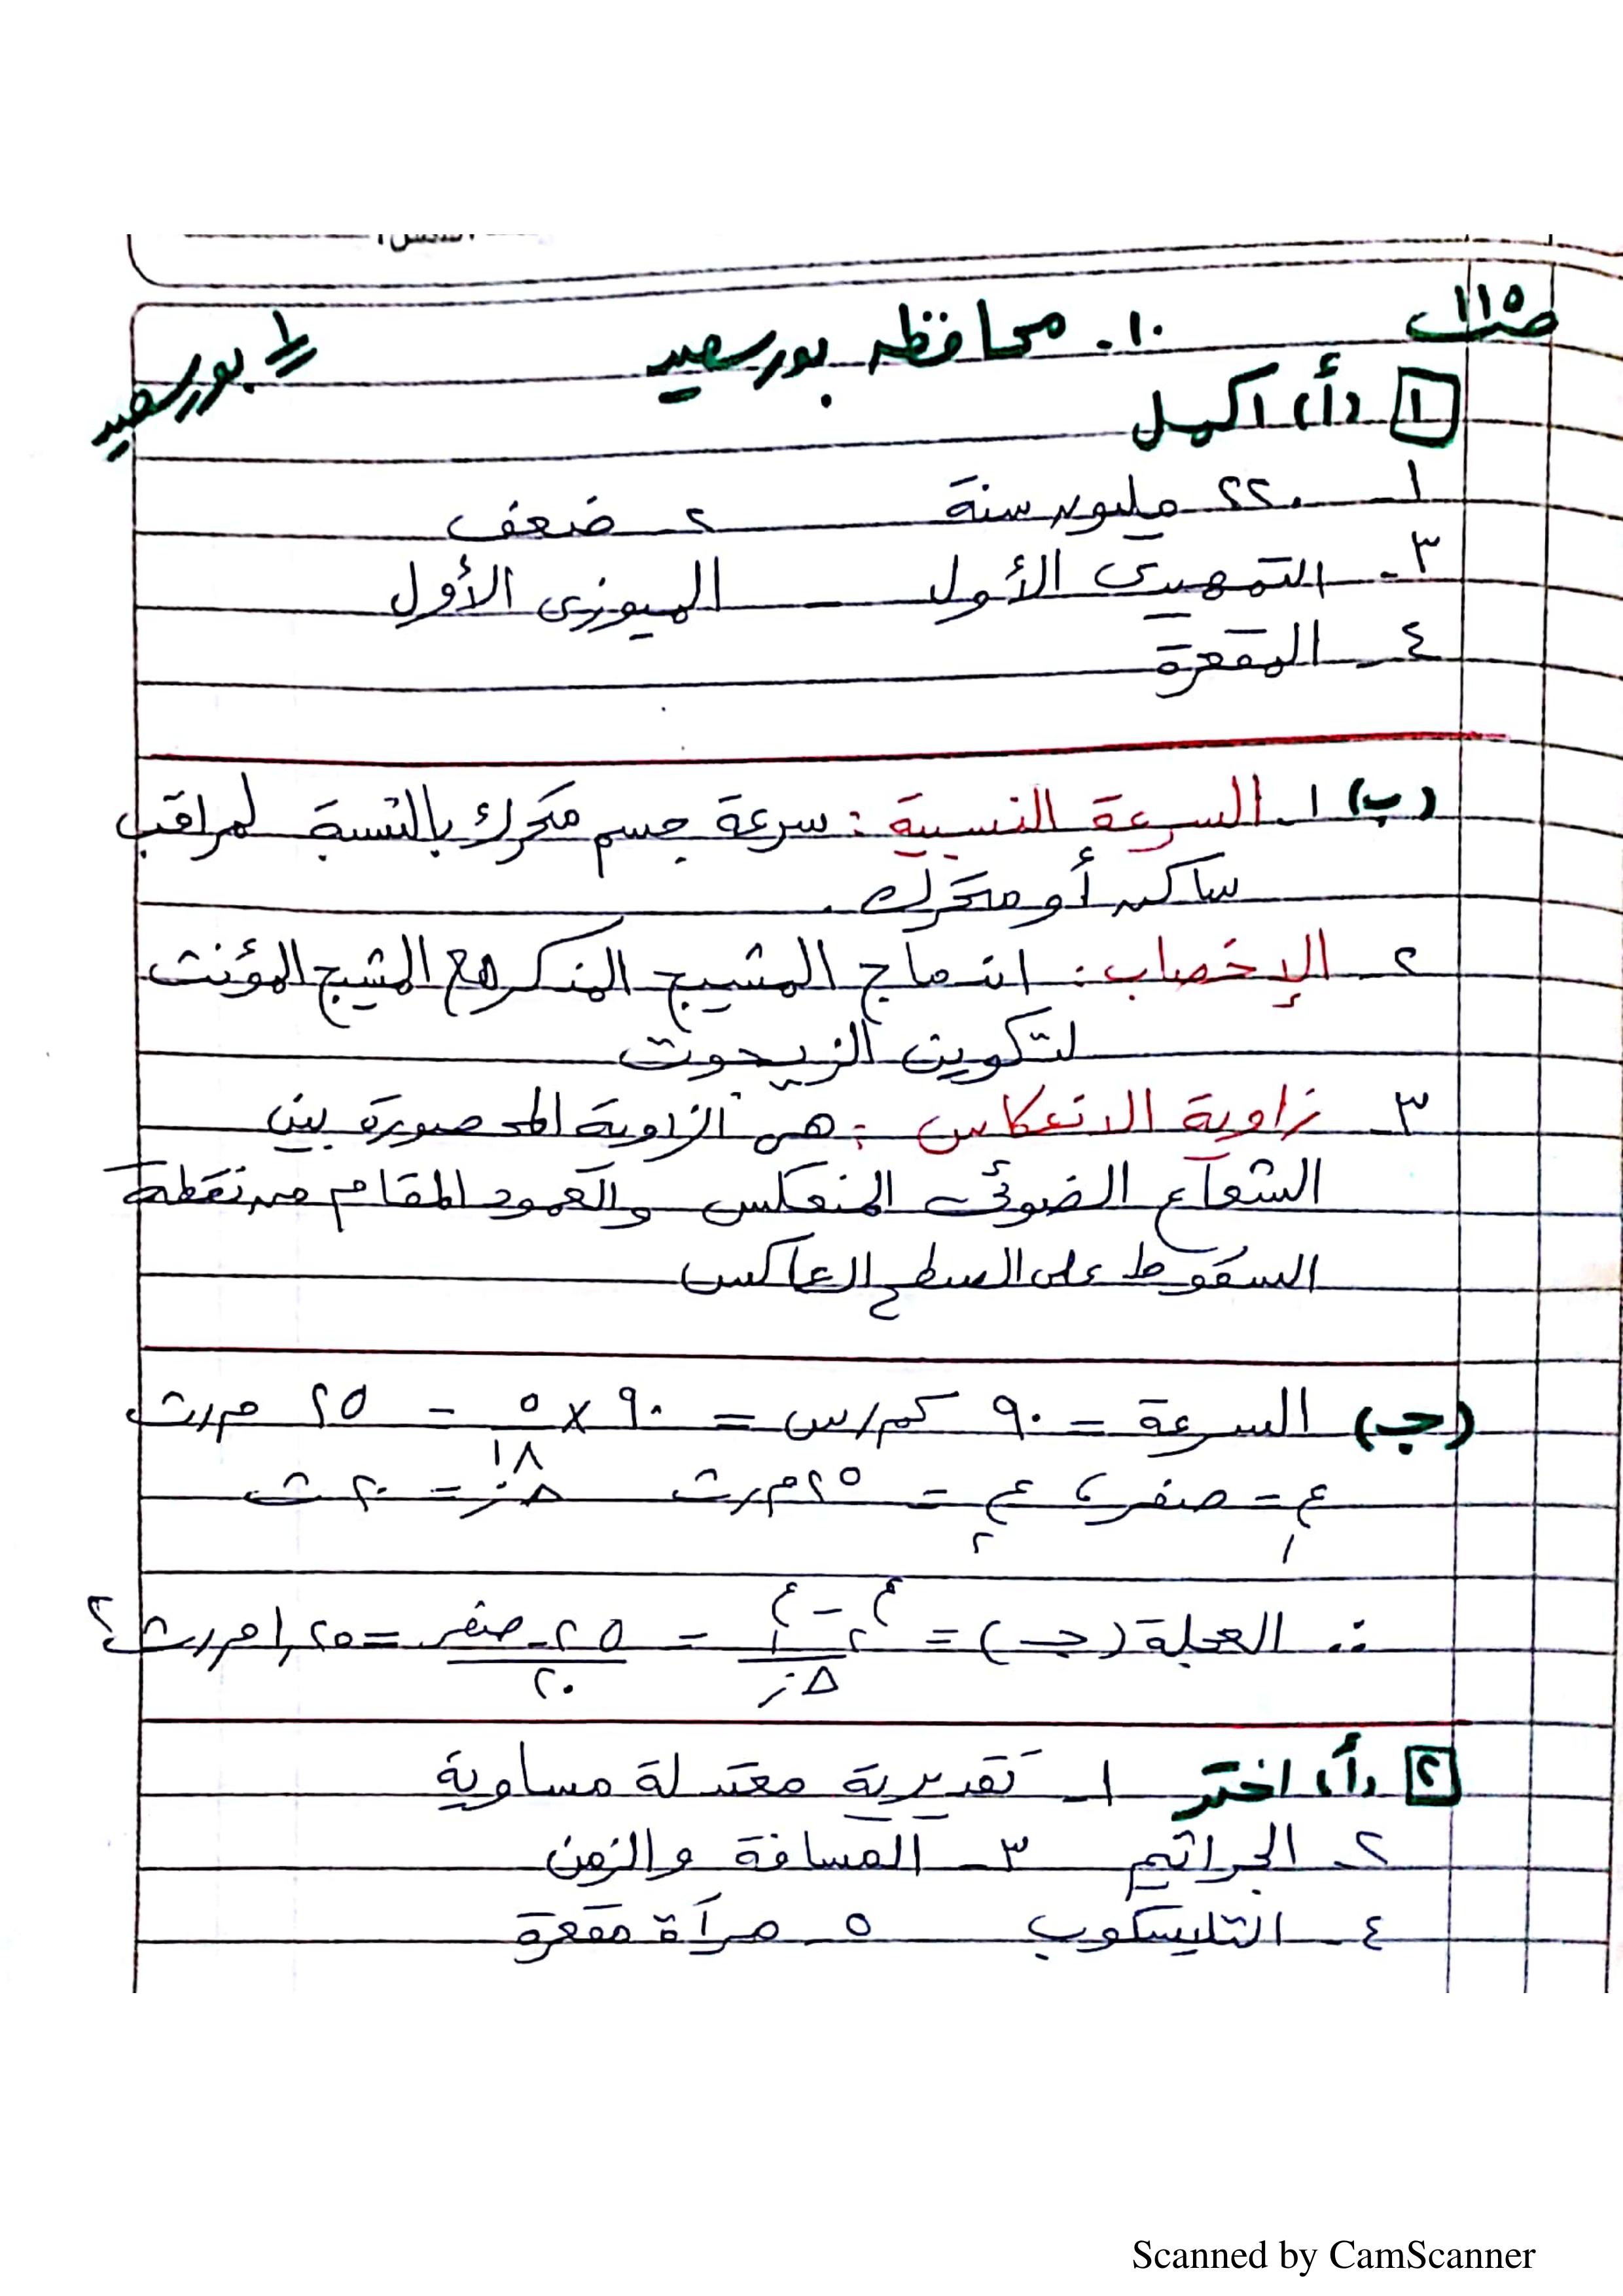 ص ١١٥
١٠- محافظه بورسعيد
بورسعيد
١ (أ) اكمل
١- ٢٢٠ مليون سنة ٢- ضعف
٣- التمهيدى الأول - الميوزى الأول
٤- المقعرة
(ب) ١- السرعة النسبية : سرعة جسم متحرك بالنسبة لمراقب
ساكن أو متحرك .
٢- الإخصاب : اندماج المشيج المذكر مع المشيج المؤنث
لتكوين الزيجوت
٣- زاوية الانعكاس : هى الزاوية المحصورة بين
الشعاع الضوئى المنعكس والعمود المقام من نقطة
السقوط على السطح العاكس
(جـ) السرعة = ٩٠ كم/س = ٩٠ × ٥/١٨ = ٢٥ م/ث
ع١ = صفر ، ع٢ = ٢٥ م/ث Δز = ٢٠ ث
∴ العجلة (جـ) = (ع٢ - ع١)/Δز = (٢٥ - صفر)/٢٠ = ١,٢٥ م/ث٢
٢ (أ) اختر ١- تقديرية معتدلة مساوية
٢- الجراثيم ٣- المسافة والزمن
٤- التليسكوب ٥- مرآة مقعرة
Scanned by CamScanner